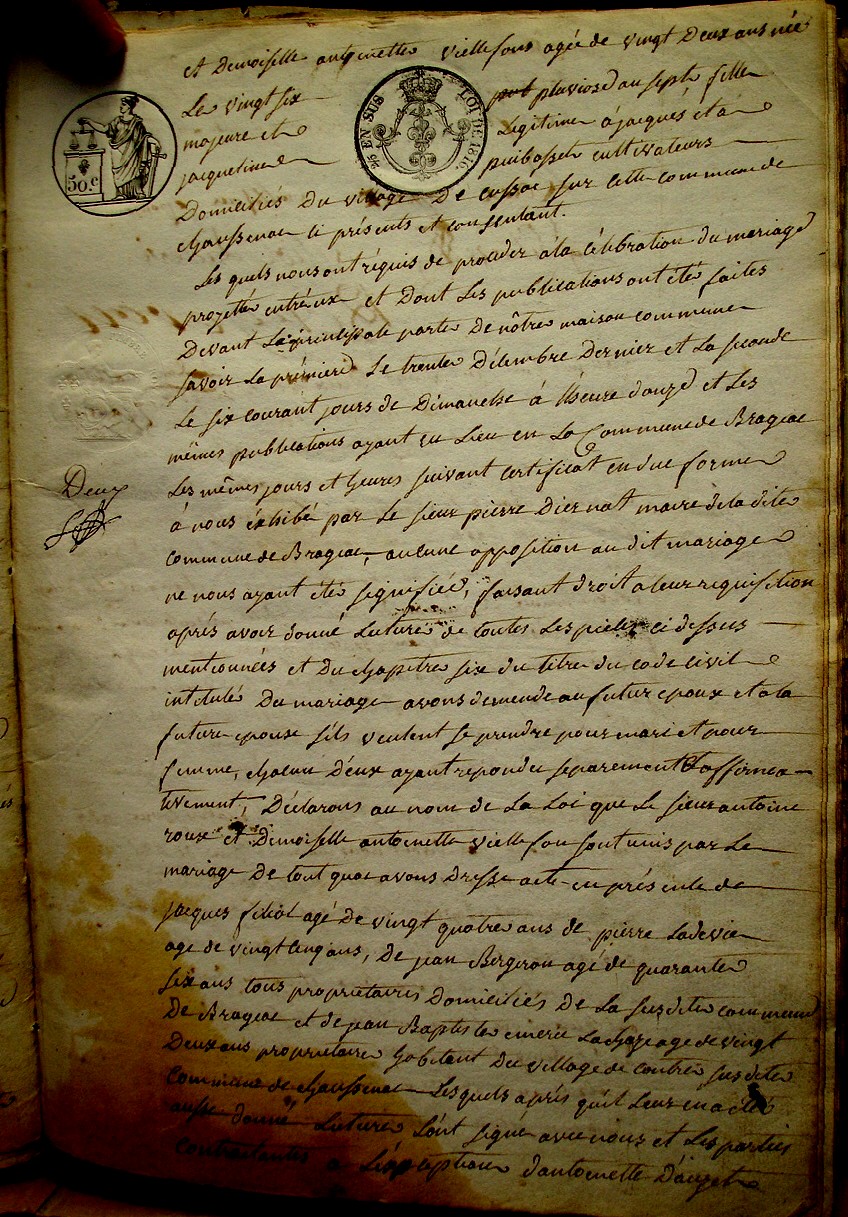 et Demoiselle antoinette vielle fons agée de vingt Deux ans née
Le vingt six pluviose an sept, fille
majeure et Legitime à jacques et a
jacqueline puibasset cultivateurs
50.c
EN SUS
LOI DE 1816
Domiciliés Du village De cussac sur cette commune de
chaussenac ci présents et consentant.
Les quels nous ont réquis de procéder a la célébration du mariage
projetté entréux et Dont Les publications ont été faites
Devant La principale porte De nôtre maison commune
savoir La prémiere Le trente Décembre Dernier et La seconde
Le six courant jours de Dimanche à lheure douze et Les
mêmes publications ayant eu Lieu en La Commune de Brageac
Les mêmes jours et heures suivant certificat en due forme
Deux
à nous éxhibé par Le sieur pierre Diernat maire de la dite
commune de Brageac, aucune opposition au dit mariage
ne nous ayant été signifiée, faisant droit a leur requisition
aprés avoir donné Lecture de toutes Les pieces ci dessus
mentionnées et Du chapitre six du titre du code civil
intitulé Du mariage avons demende au futur epoux et a la
future epouse s'ils veulent se prendre pour mari et pour
femme, chacun D'eux ayant repondu separement et affirma-
tivement, Déclarons au nom de La Loi que Le sieur antoine
roux et Demoiselle antoinette vielle fon sont unis par Le
mariage De tout quoi avons Dressé acte en présence de
jacques filiol agé De vingt quatre ans de pierre Ladevie
age de vingt cinq ans, De jean Bergeron agé de quarante
six ans tous proprietaires Domiciliés De La susdite commune
De Brageac et de jean Baptiste emerie Lachaze age de vingt
Deux ans proprietaire habitant Du village de contre susdite
Commune de chaussenac Lesquels aprés qu'il Leur en a été
aussi donné Lecture L'ont signé avec nous et Les parties
Contractantes a L'exception d'antoinette D'auzet